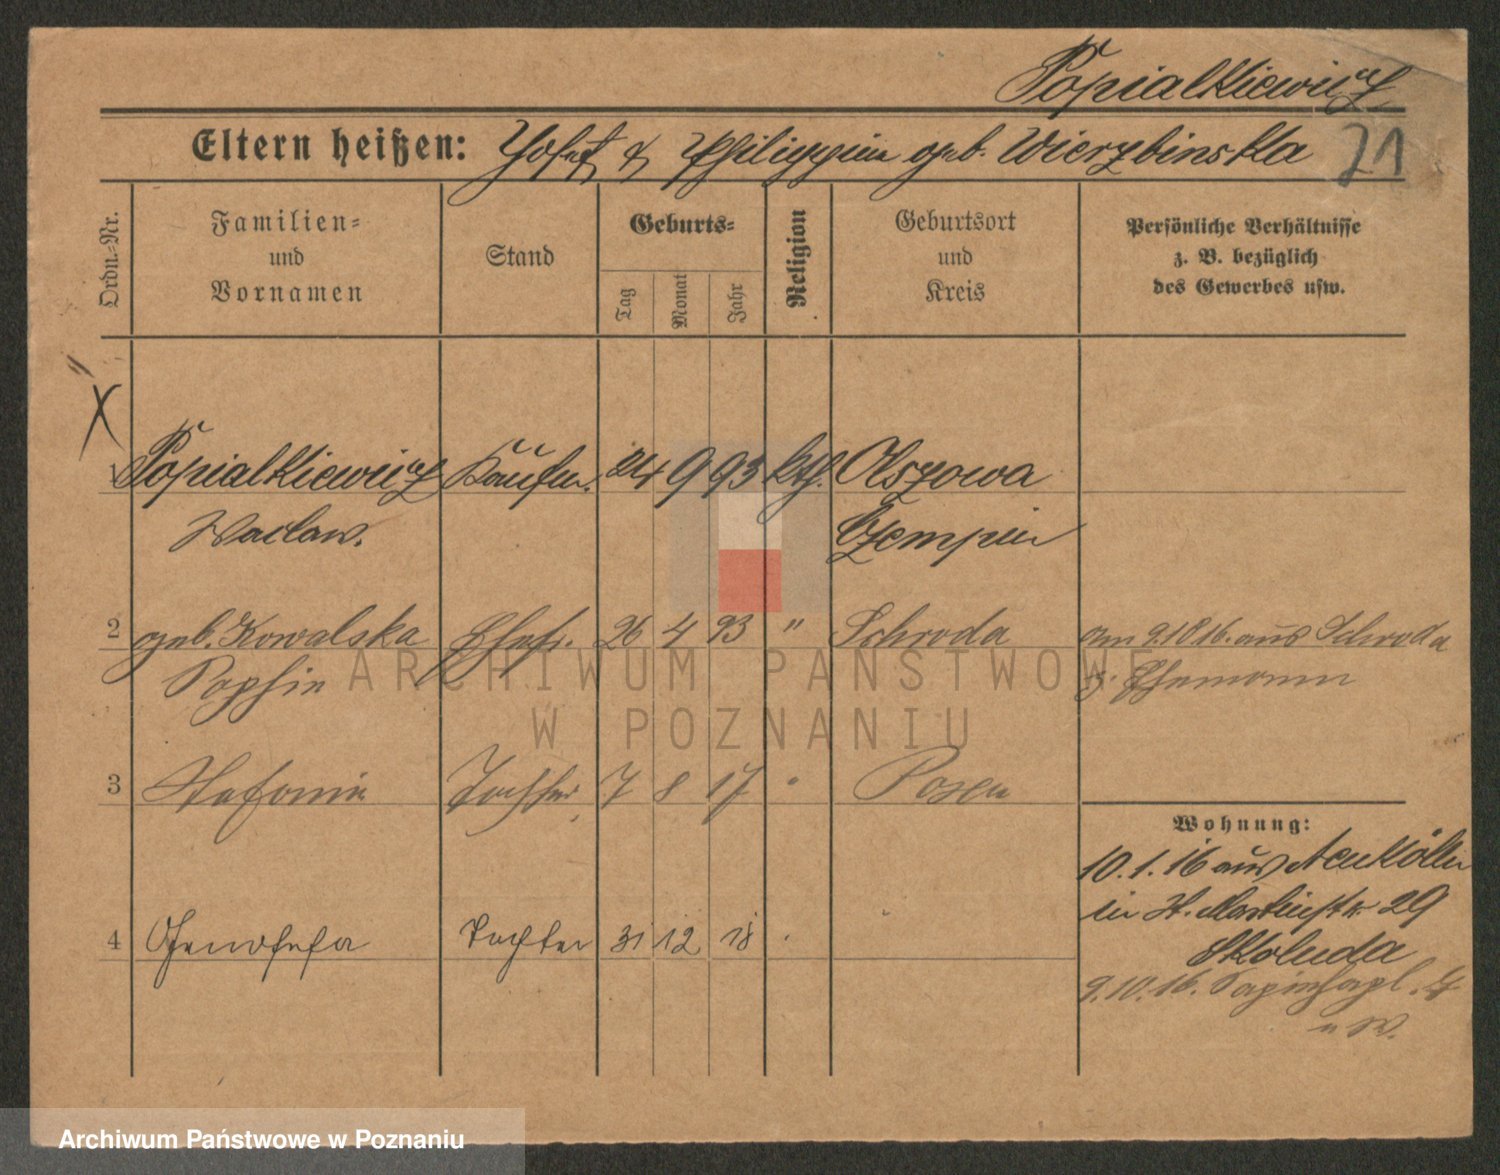 Popialkiewicz
Eltern heißen: Josef & Philippine geb. Wierzbinska 21
Ordn.-Nr.
Familien-
und
Vornamen
Stand
Geburts-
Tag
Monat
Jahr
Religion
Geburtsort
und
Kreis
Persönliche Verhältnisse
z. B. bezüglich
des Gewerbes usw.
X
1 Popialkiewicz Kaufm. 24 9 93 kth. Olszowa
Waclaw. Czempin
2 geb. Kowalska Ehefr. 26 4 93 " Schroda am 9.10 16. aus Schroda
Sophie z. Ehemann
3 Stefanie Tochter 7 8 17 " Posen
Wohnung:
10.1.16 aus Neukölln
in St. Martinstr. 29
Skoluda
4 Genofefa Tochter 31 12 18 .
9.10.16.
u W.
ARCHIWUM PAŃSTWOWE
W POZNANIU
Archiwum Państwowe w Poznaniu